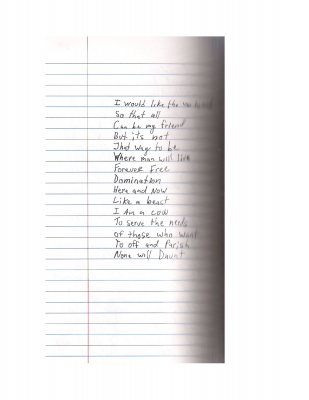 I would like the
So that all
Can be my friend
But its not
That way to be
Where man will live
Forever Free
Domination
Here and Now
Like a beast
I Am a cow
To serve the needs
of those who want
To off and Parish
None will Daunt